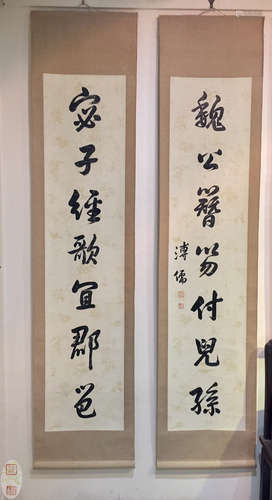 魏公簪笏付兒孫
溥儒
宓子經歌宜郡邑